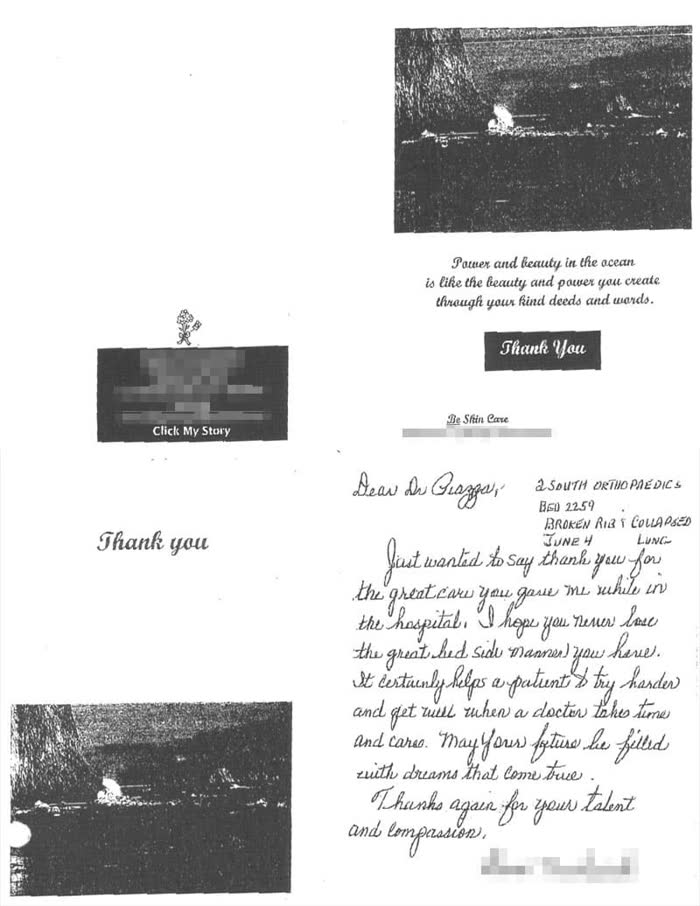 Power and beauty in the ocean
is like the beauty and power you create
through your kind deeds and words.
Thank You
Click My Story
Be Skin Care
Thank you
Dear Dr Piazza,
2 SOUTH ORTHOPAEDICS
BED 2259
BROKEN RIB & COLLAPSED
JUNE 4 LUNG
Just wanted to say thank you for
the great care you gave me while in
the hospital. I hope you never lose
the great bed side manner you have.
It certainly helps a patient to try harder
and get well when a doctor takes time
and cares. May your future be filled
with dreams that come true.
Thanks again for your talent
and compassion.